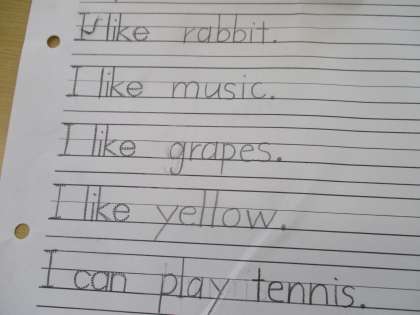 I like rabbit.
I like music.
I like grapes.
I like yellow.
I can play tennis.